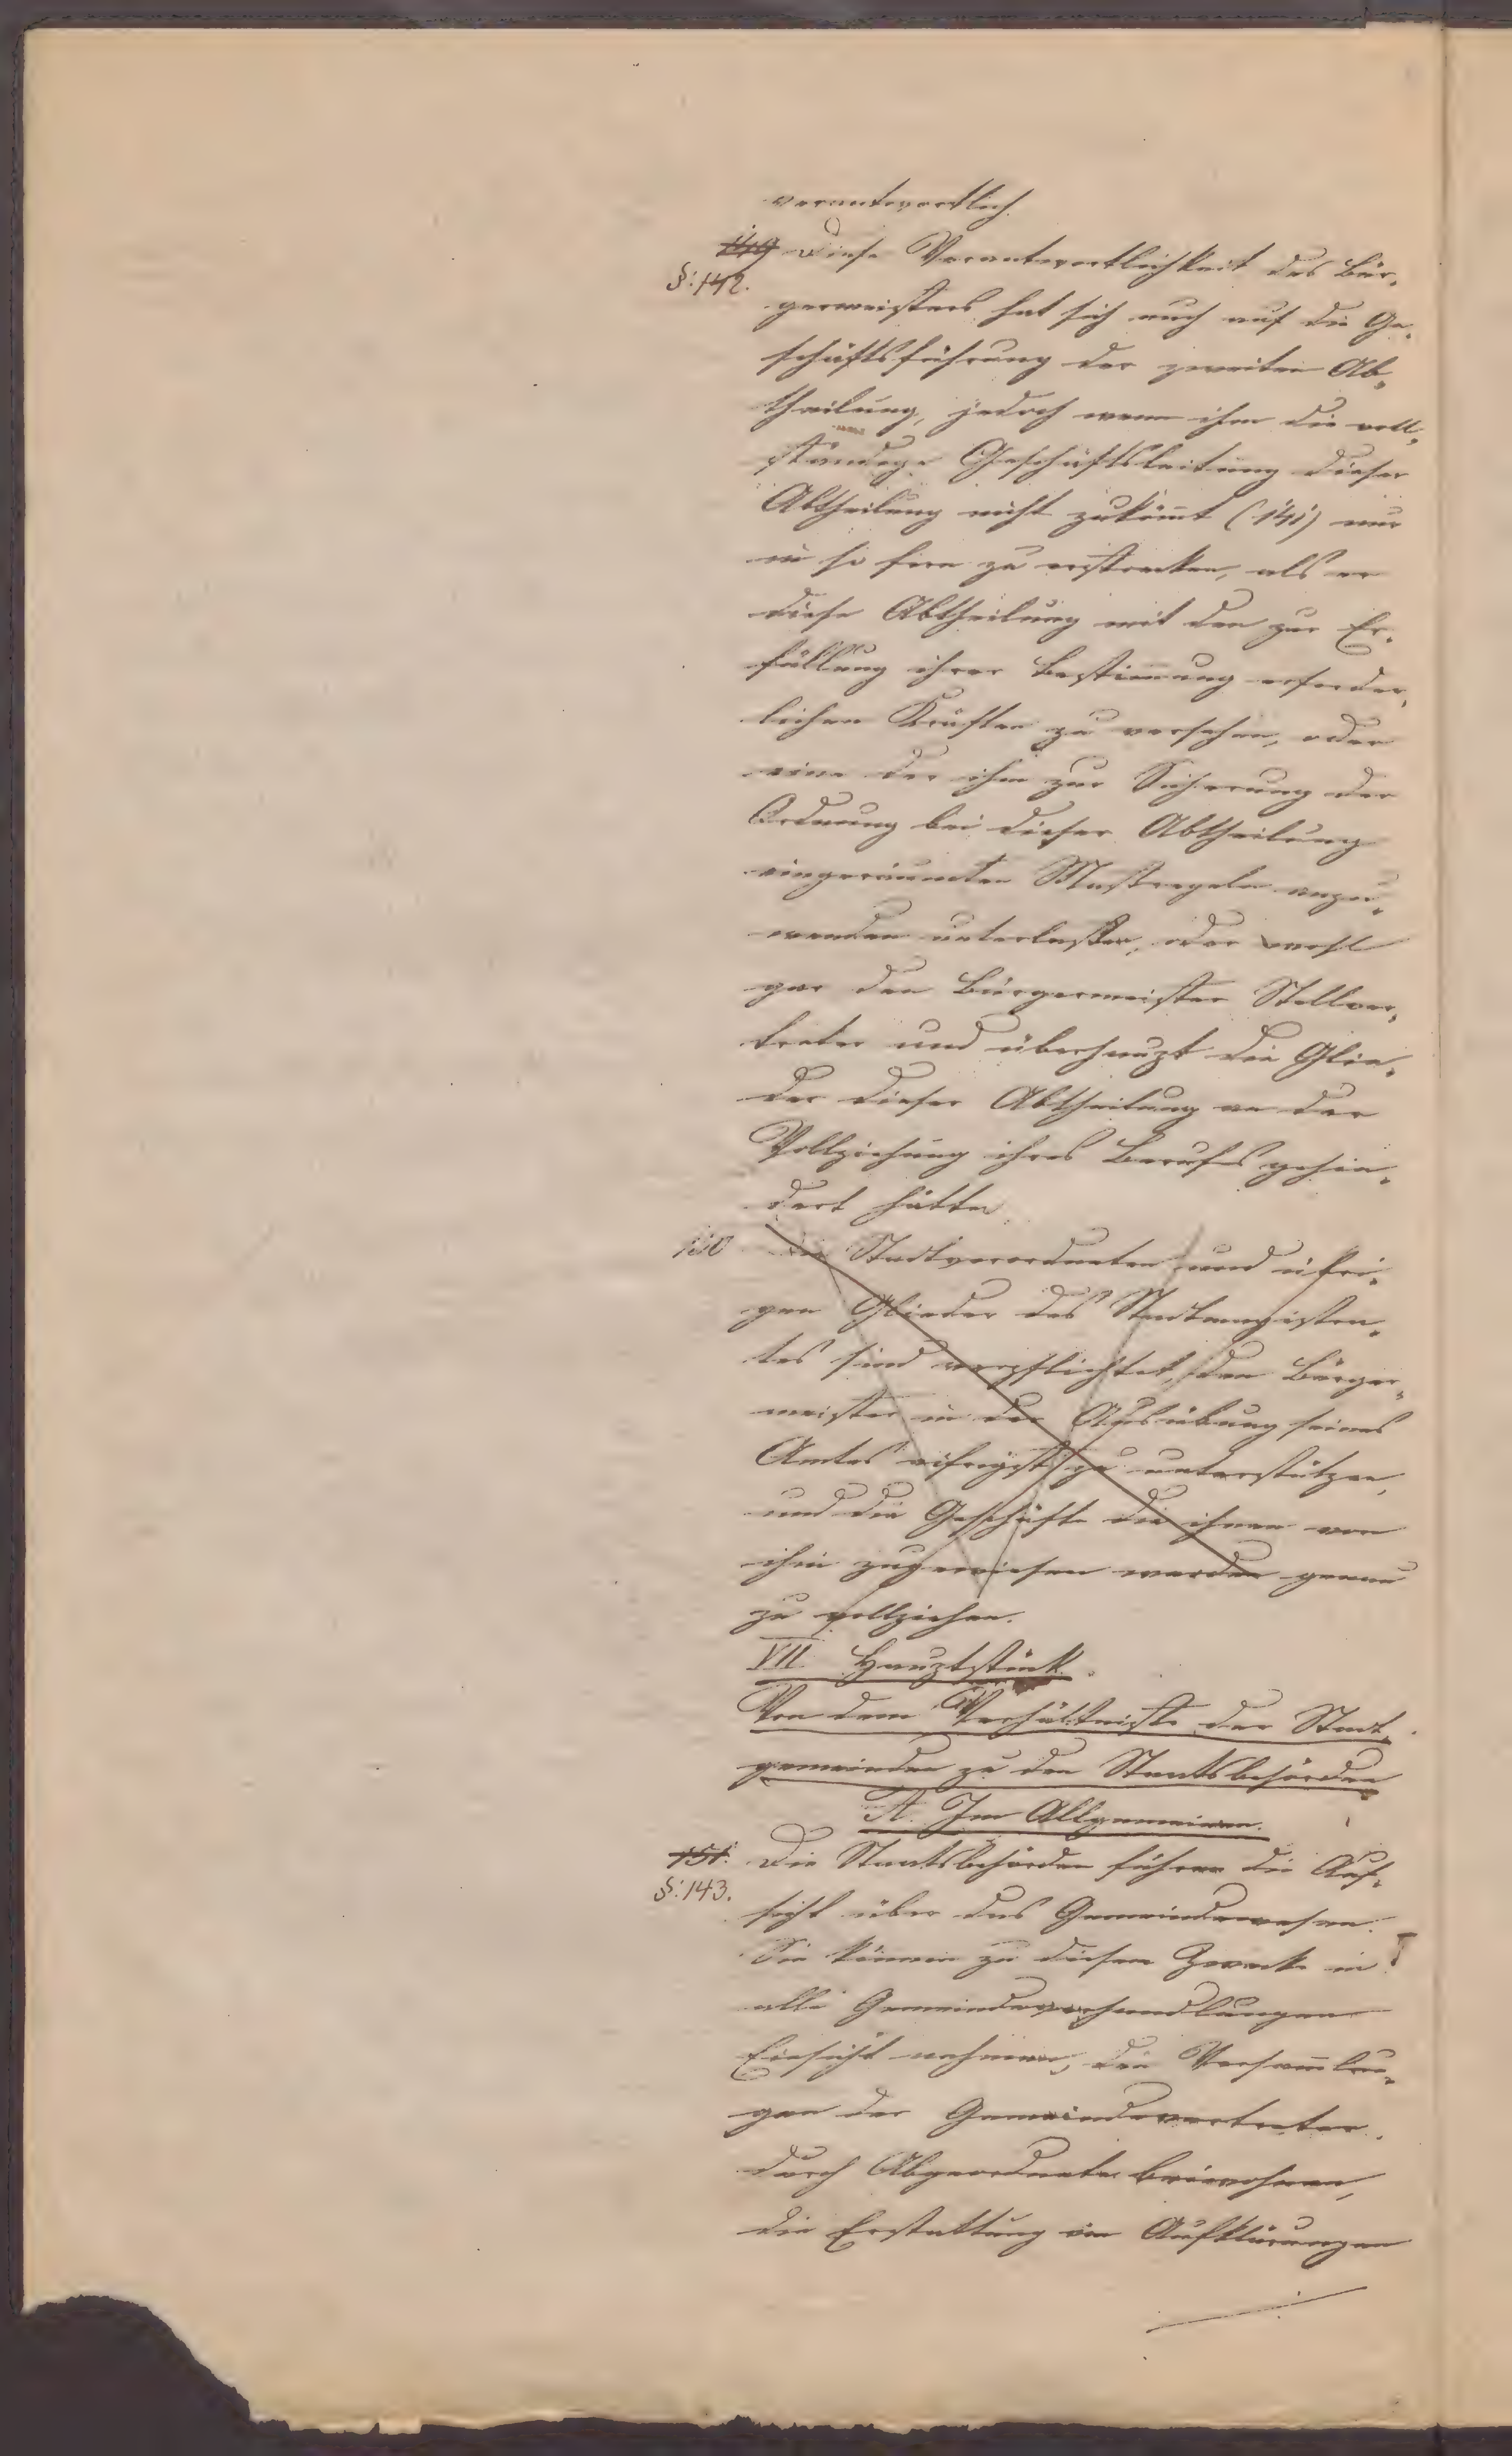 verantwortlich.
149 Diese Verantwortlichkeit des Bür-
§: 142.
germeisters hat sich auch auf die Ge-
schäftsführung der zweiten Ab-
theilung, jedoch wenn ihm die voll-
ständige Geschäftsleitung dieser
Abtheilung nicht zukömt (141) nur
in so fern zu erstrecken, als er
diese Abtheilung mit den zur Er-
füllung ihrer Bestimung erforder-
lichen Kräften zu versehen, oder
eine der ihm zur Sicherung der
Ordnung bei dieser Abtheilung
eingeräumten Maßregeln anzu-
wenden unterlaßen, oder wohl
gar den Bürgermeister Stellver-
treter und überhaupt die Glie-
der dieser Abtheilung an der
Vollziehung ihres Berufes gehin-
dert hätte.
150 Die Stadtverordneten und übri-
gen Glieder des Stadtmagistra-
tes sind verpflichtet, den Bürger-
meister in der Ausübung seines
Amtes eifrigst zu unterstützen,
und die Geschäfte die ihnen von
ihm zugewiesen werden genau
zu vollziehen.
VII. Hauptstück.
Von dem Verhältniße der Stadt-
gemeinden zu den Staatsbehörden
A. Im Allgemeinen.
151. Die Staatsbehörden führen die Auf-
§: 143.
sicht über das Gemeindewesen.
Sie können zu diesem Zwecke in
alle Gemeindeverhandlungen
Einsicht nehmen, den Versamlun-
gen der Gemeindevertreter
durch Abgeordnete beiwohnen,
die Erstattung von Aufklärungen